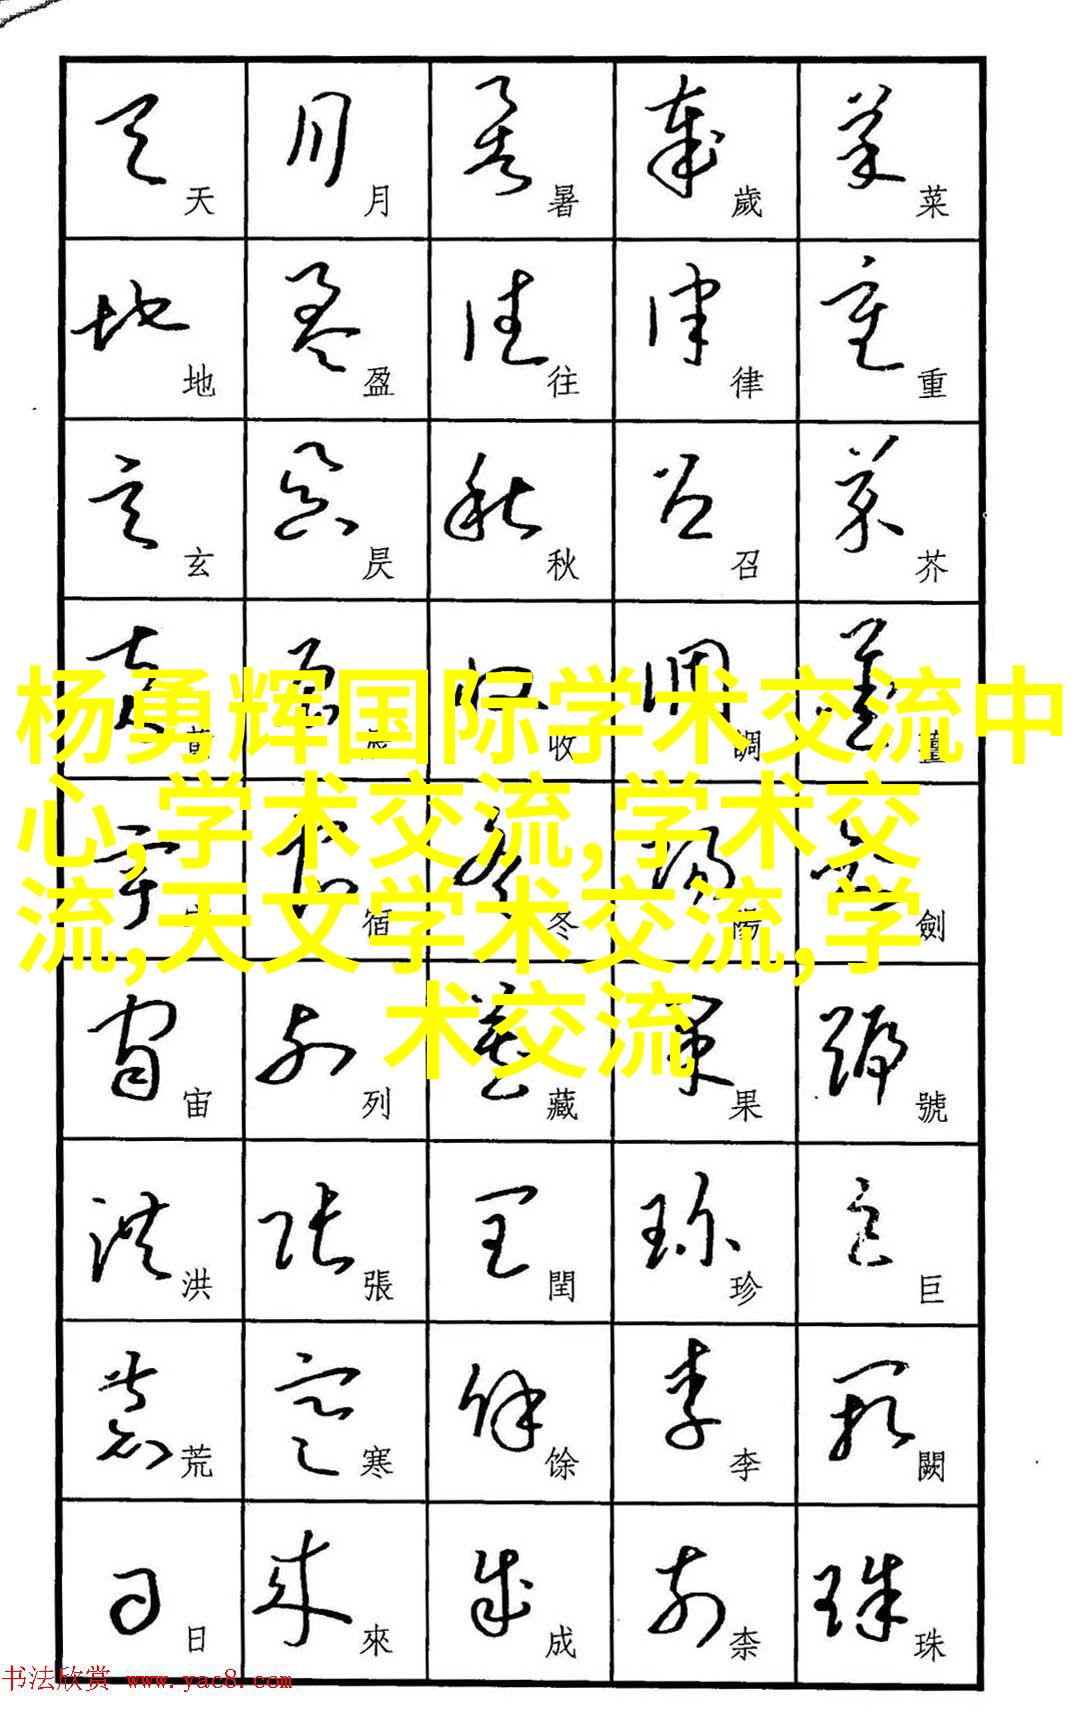 天 月 暑 歲 菜
地 盈 往 律 重
玄 昃 秋 召 芥
收 調 薑
杨勇辉国际学术交流中
心,学术交流,学术交
宿 冬 陽 劍
流,天文学术交流,学
术交流
宙 列 藏 果 號
洪 張 閏 珍 巨
荒 寒 馀 李 闕
日 來 成 柰 珠
书法欣赏 www.yac8.com